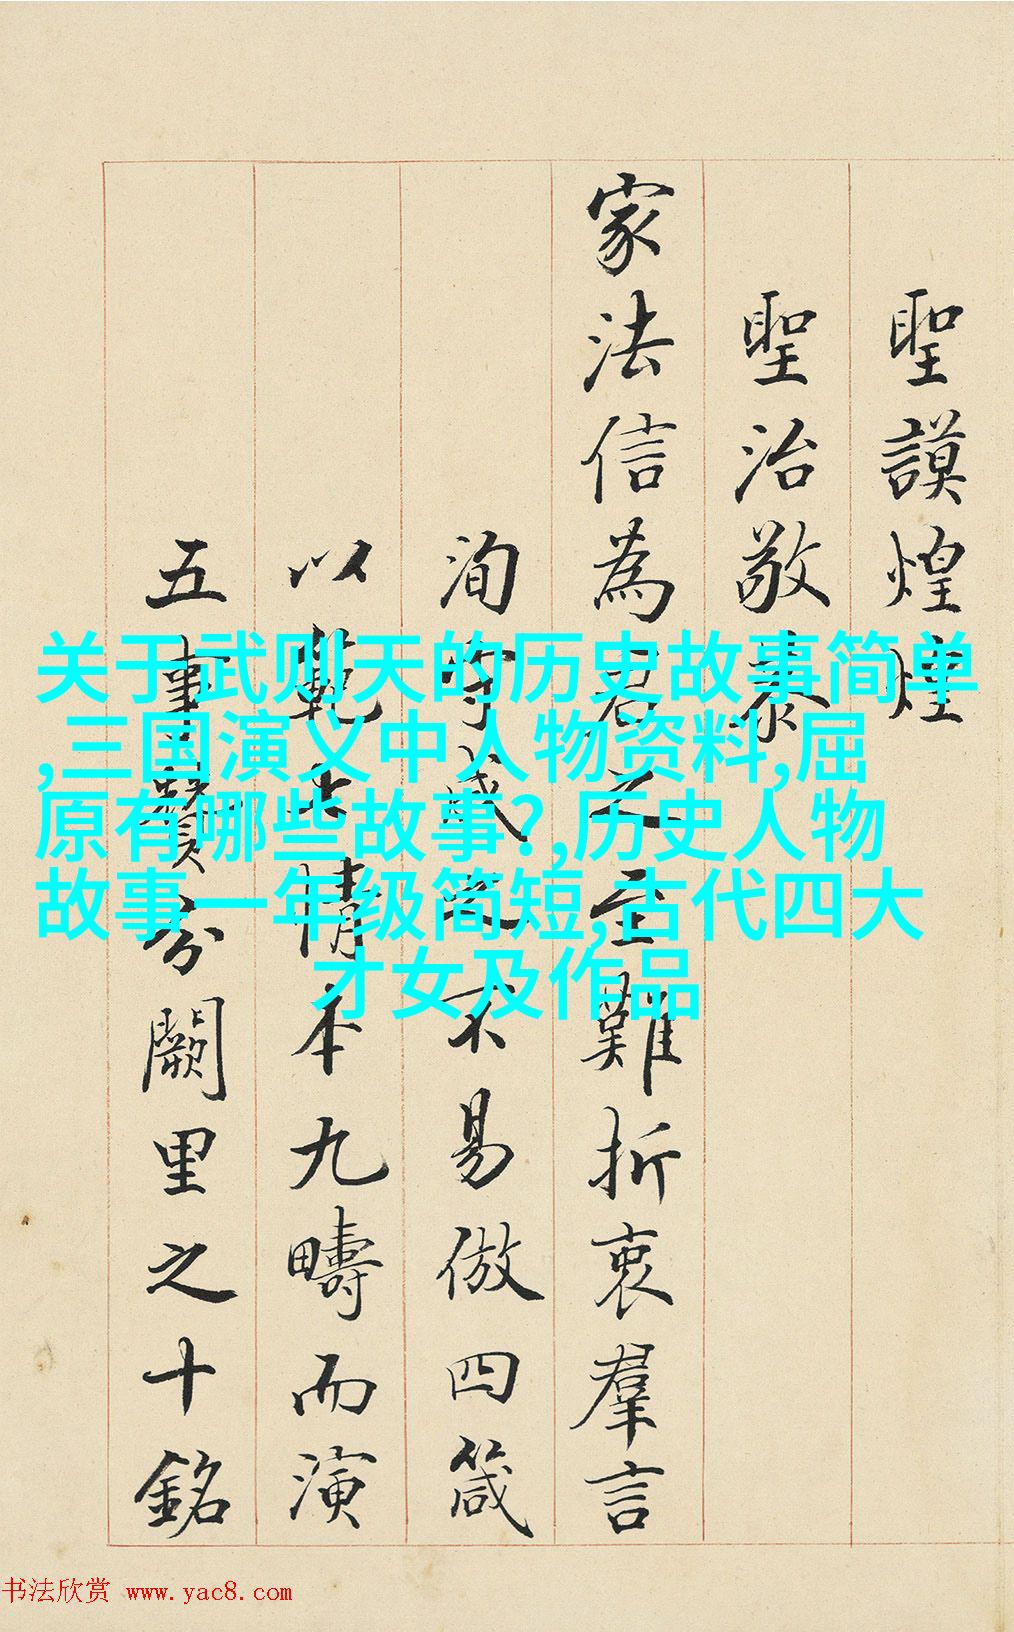 聖謨煌煌
聖治敬泰
家法信為君之至難折衷羣言
洵守成之不易倣四箴
以範七情本九疇而演
五事贊分闕里之十銘
关于武则天的历史故事简单
,三国演义中人物资料,屈
原有哪些故事?,历史人物
故事一年级简短,古代四大
才女及作品
书法欣赏 www.yac8.com